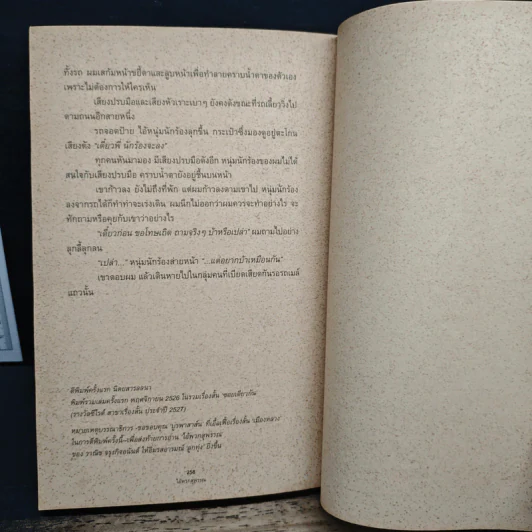 ทั้งรถ ผมเสก้มหน้าขยี้ตาและลูบหน้าเพื่อทำลายคราบน้ำตาของตัวเอง
เพราะไม่ต้องการให้ใครเห็น
เสียงปรบมือและเสียงหัวเราะเบาๆ ยังคงดังขณะที่รถเลี้ยววิ่งไป
ตามถนนอีกสายหนึ่ง
รถจอดป้าย ไอ้หนุ่มนักร้องลุกขึ้น กระเป๋าซึ่งมองดูอยู่ตะโกน
เสียงดัง "เดี๋ยวพี่ นักร้องจะลง"
ทุกคนหันมามอง มีเสียงปรบมือดังอีก หนุ่มนักร้องของผมไม่ได้
สนใจกับเสียงปรบมือ คราบน้ำตายังอยู่ชื้นบนหน้า
เขาก้าวลง ยังไม่ถึงที่พัก แต่ผมก้าวลงตามเขาไป หนุ่มนักร้อง
ลงจากรถได้ก็ทำท่าจะเร่งเดิน ผมนึกไม่ออกว่าผมควรจะทำอย่างไร จะ
ทักถามหรือคุยกับเขาว่าอย่างไร
"เดี๋ยวก่อน ขอโทษเถิด ถามจริงๆ บ้าหรือเปล่า" ผมถามไปอย่าง
ลุกลี้ลุกลน
"เปล่า..." หนุ่มนักร้องส่ายหน้า "...แต่อยากบ้าเหมือนกัน"
เขาตอบผม แล้วเดินหายไปในกลุ่มคนที่เบียดเสียดกันรอรถเมล์
แถวนั้น
ตีพิมพ์ครั้งแรก นิตยสารลลนา
พิมพ์รวมเล่มครั้งแรก พฤศจิกายน 2526 ในรวมเรื่องสั้น 'ซอยเดียวกัน'
(รางวัลซีไรต์ สาขาเรื่องสั้น ประจำปี 2527)
หมายเหตุบรรณาธิการ -ขอขอบคุณ 'บูรพาสาส์น' ที่เอื้อเฟื้อเรื่องสั้น 'เมืองหลวง'
ในการตีพิมพ์ครั้งนี้-เพื่อส่งท้ายการอ่าน 'ไอ้พวกสุพรรณ'
ของ วาณิช จรุงกิจอนันต์ ให้อิ่มรสอารมณ์ 'ลูกทุ่ง' ยิ่งขึ้น
ไอ้พวกสุพรรณ